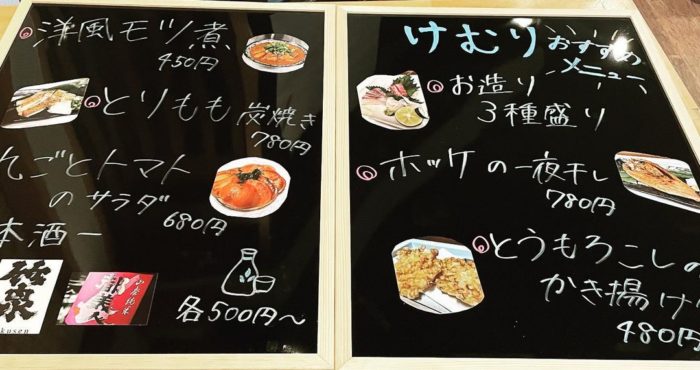 洋風モツ煮
450円
とりもも 炭焼き
780円
んごとトマト
のサラダ
680円
本酒一
kusen
山廃純米
各500円~
けむり おすすめ
メニュー
お造り
3種盛り
ホッケの一夜干し
780円
とうもろこしの
かき揚げ
480円